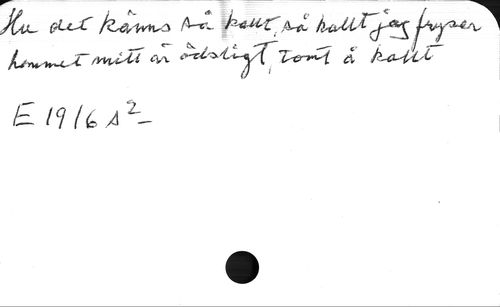 Hu det känns så kallt, så kallt jag fryser
hemmet mitt är ödsligt, tomt å kallt
E 19/6 s 2-